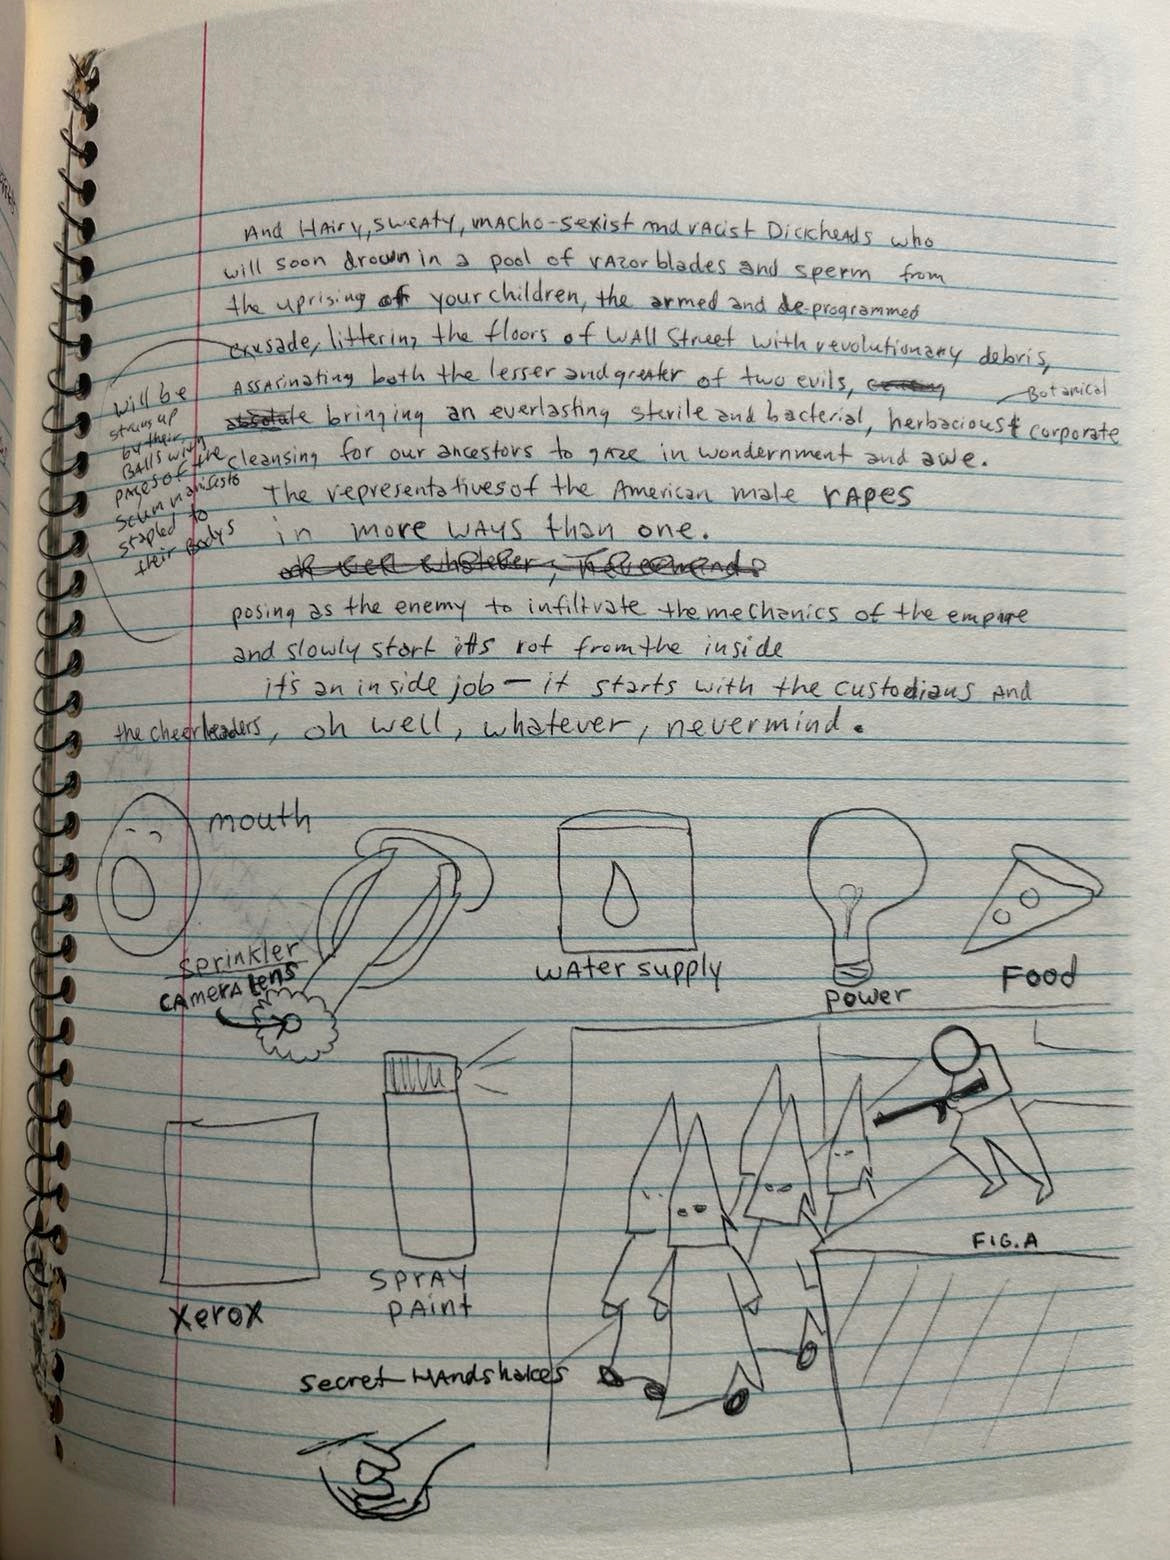 And HAiry, sweAty, mAcho-sexist and rAcist DickheAds who
will soon drown in a pool of rAzorblades and sperm from
the uprising of your children, the armed and de-programmed
crusade, littering the floors of WAll Street with revolutionary debris,
AssAsinating both the lesser and greater of two evils,
Botanical
bringing an everlasting sterile and bacterial, herbacious & corporate
cleansing for our ancestors to gAze in wondernment and awe.
will be
strung up
by their
BAlls with
pAges of the
Scum manifesto
stapled to
their Bodys
The representatives of the American male rApes
in more WAys than one.
oh well whatever, nevermind
posing as the enemy to infiltrate the mechanics of the empire
and slowly start its rot from the inside
it's an inside job — it starts with the custodians And
the cheerleaders, oh well, whatever, nevermind.
mouth
Sprinkler
CAmerA Lens
WAter supply
power
Food
Xerox
SprAy
pAint
FIG.A
Secret HAndshakes